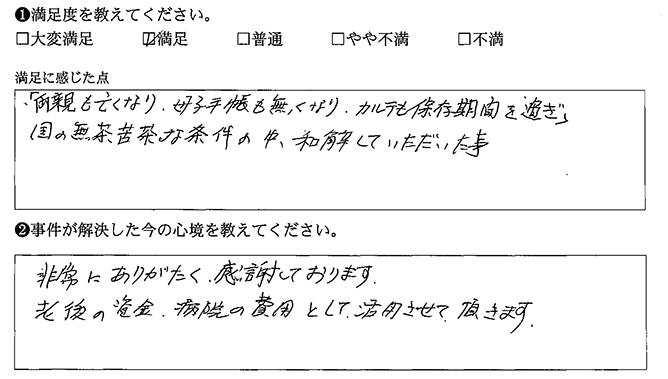 ❶満足度を教えてください。
□大変満足 ☑満足 □普通 □やや不満 □不満
満足に感じた点
両親も亡くなり、母子手帳も無くなり、カルテも保存期間を過ぎ、
国の無茶苦茶な条件の中、和解していただいた事
❷事件が解決した今の心境を教えてください。
非常にありがたく、感謝しております。
老後の資金、病院の費用として、活用させて頂きます。